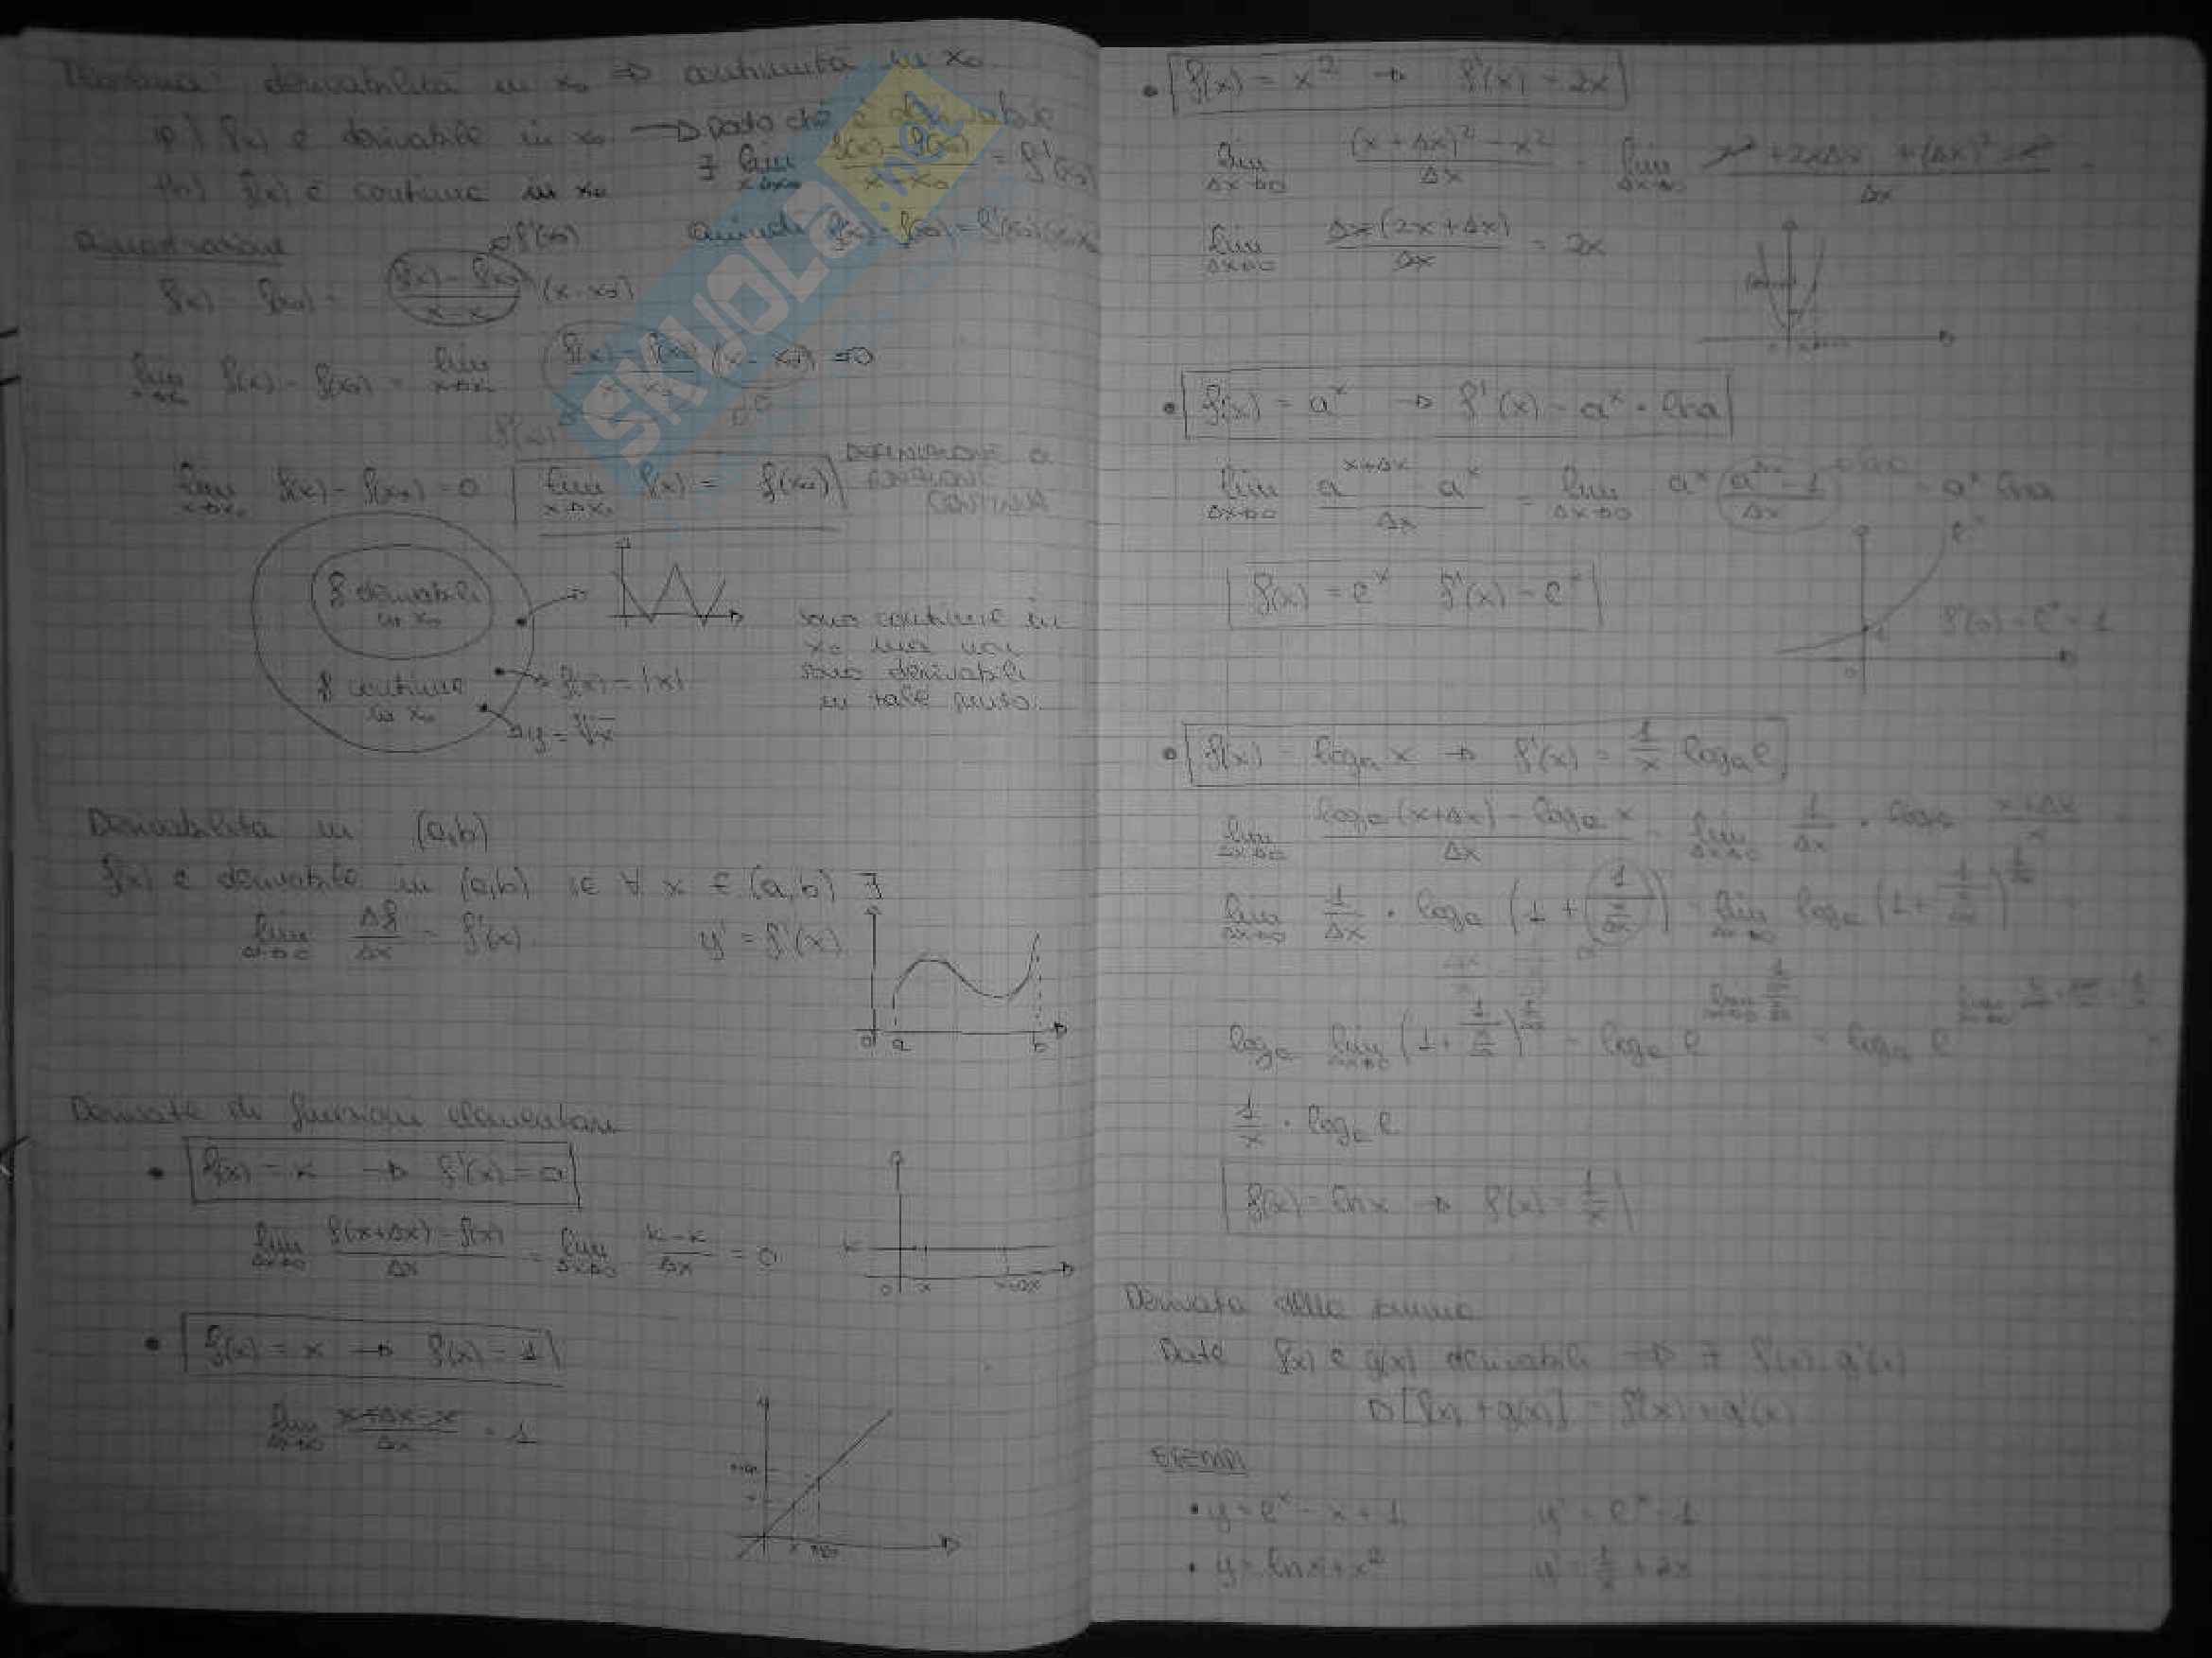 Teorema: derivabilità in x₀ ⇒ continuità in x₀
ip) f(x) è derivabile in x₀ → Dato che è derivabile
∃ lim x→x₀ (f(x) - f(x₀))/(x - x₀) = f'(x₀)
th) f(x) è continua in x₀
quindi f(x) - f(x₀) = f'(x₀)(x-x₀)
Dimostrazione
f'(x₀)
f(x) - f(x₀) = (f(x) - f(x₀))/(x - x₀) (x - x₀)
lim x→x₀ f(x) - f(x₀) = lim x→x₀ (f(x) - f(x₀))/(x - x₀) (x - x₀) = 0
f'(x₀) 0
lim x→x₀ f(x) - f(x₀) = 0 lim x→x₀ f(x) = f(x₀) DEFINIZIONE DI
FUNZIONE
CONTINUA
f derivabili
in x₀
f continue
in x₀
f(x) = |x|
y = ∛x
sono continue in
x₀ ma non
sono derivabili
in tale punto.
Derivabilità in (a,b)
f(x) è derivabile in (a,b) se ∀ x ∈ (a,b) ∃
lim Δx→0 Δf/Δx = f'(x) y' = f'(x)
0 a b
Derivate di funzioni elementari
• f(x) = k → f'(x) = 0
lim Δx→0 (f(x+Δx) - f(x))/Δx = lim Δx→0 (k-k)/Δx = 0
k
0 x x+Δx
• f(x) = x → f(x) = 1
lim Δx→0 (x+Δx-x)/Δx = 1
y
x x+Δx
• f(x) = x² → f'(x) = 2x
lim Δx→0 ((x+Δx)² - x²)/Δx = lim Δx→0 (x² + 2xΔx + (Δx)² - x²)/Δx =
lim Δx→0 Δx(2x+Δx)/Δx = 2x
• f(x) = aˣ → f'(x) = aˣ · ln a
lim Δx→0 (a^(x+Δx) - aˣ)/Δx = lim Δx→0 aˣ (a^Δx - 1)/Δx = aˣ ln a
f(x) = eˣ f'(x) = eˣ
eˣ
1
0
f(0) = e⁰ = 1
• f(x) = logₐ x → f'(x) = 1/x logₐ e
lim Δx→0 (logₐ(x+Δx) - logₐ x)/Δx = lim Δx→0 1/Δx · logₐ (x+Δx)/x =
lim Δx→0 1/Δx · logₐ (1 + 1/(x/Δx)) = lim Δx→0 logₐ (1 + 1/(x/Δx))^(1/Δx) =
logₐ lim Δx→0 (1 + 1/(x/Δx))^(1/Δx) = logₐ e = logₐ e =
1/x · logₐ e
f(x) = ln x → f'(x) = 1/x
Derivata della somma
Date f(x) e g(x) derivabili ⇒ ∃ f'(x), g'(x)
D[f(x) + g(x)] = f'(x) + g'(x)
ESEMPI
• y = eˣ - x + 1 y' = eˣ - 1
• y = ln x + x² y' = 1/x + 2x
SKUOLA.net